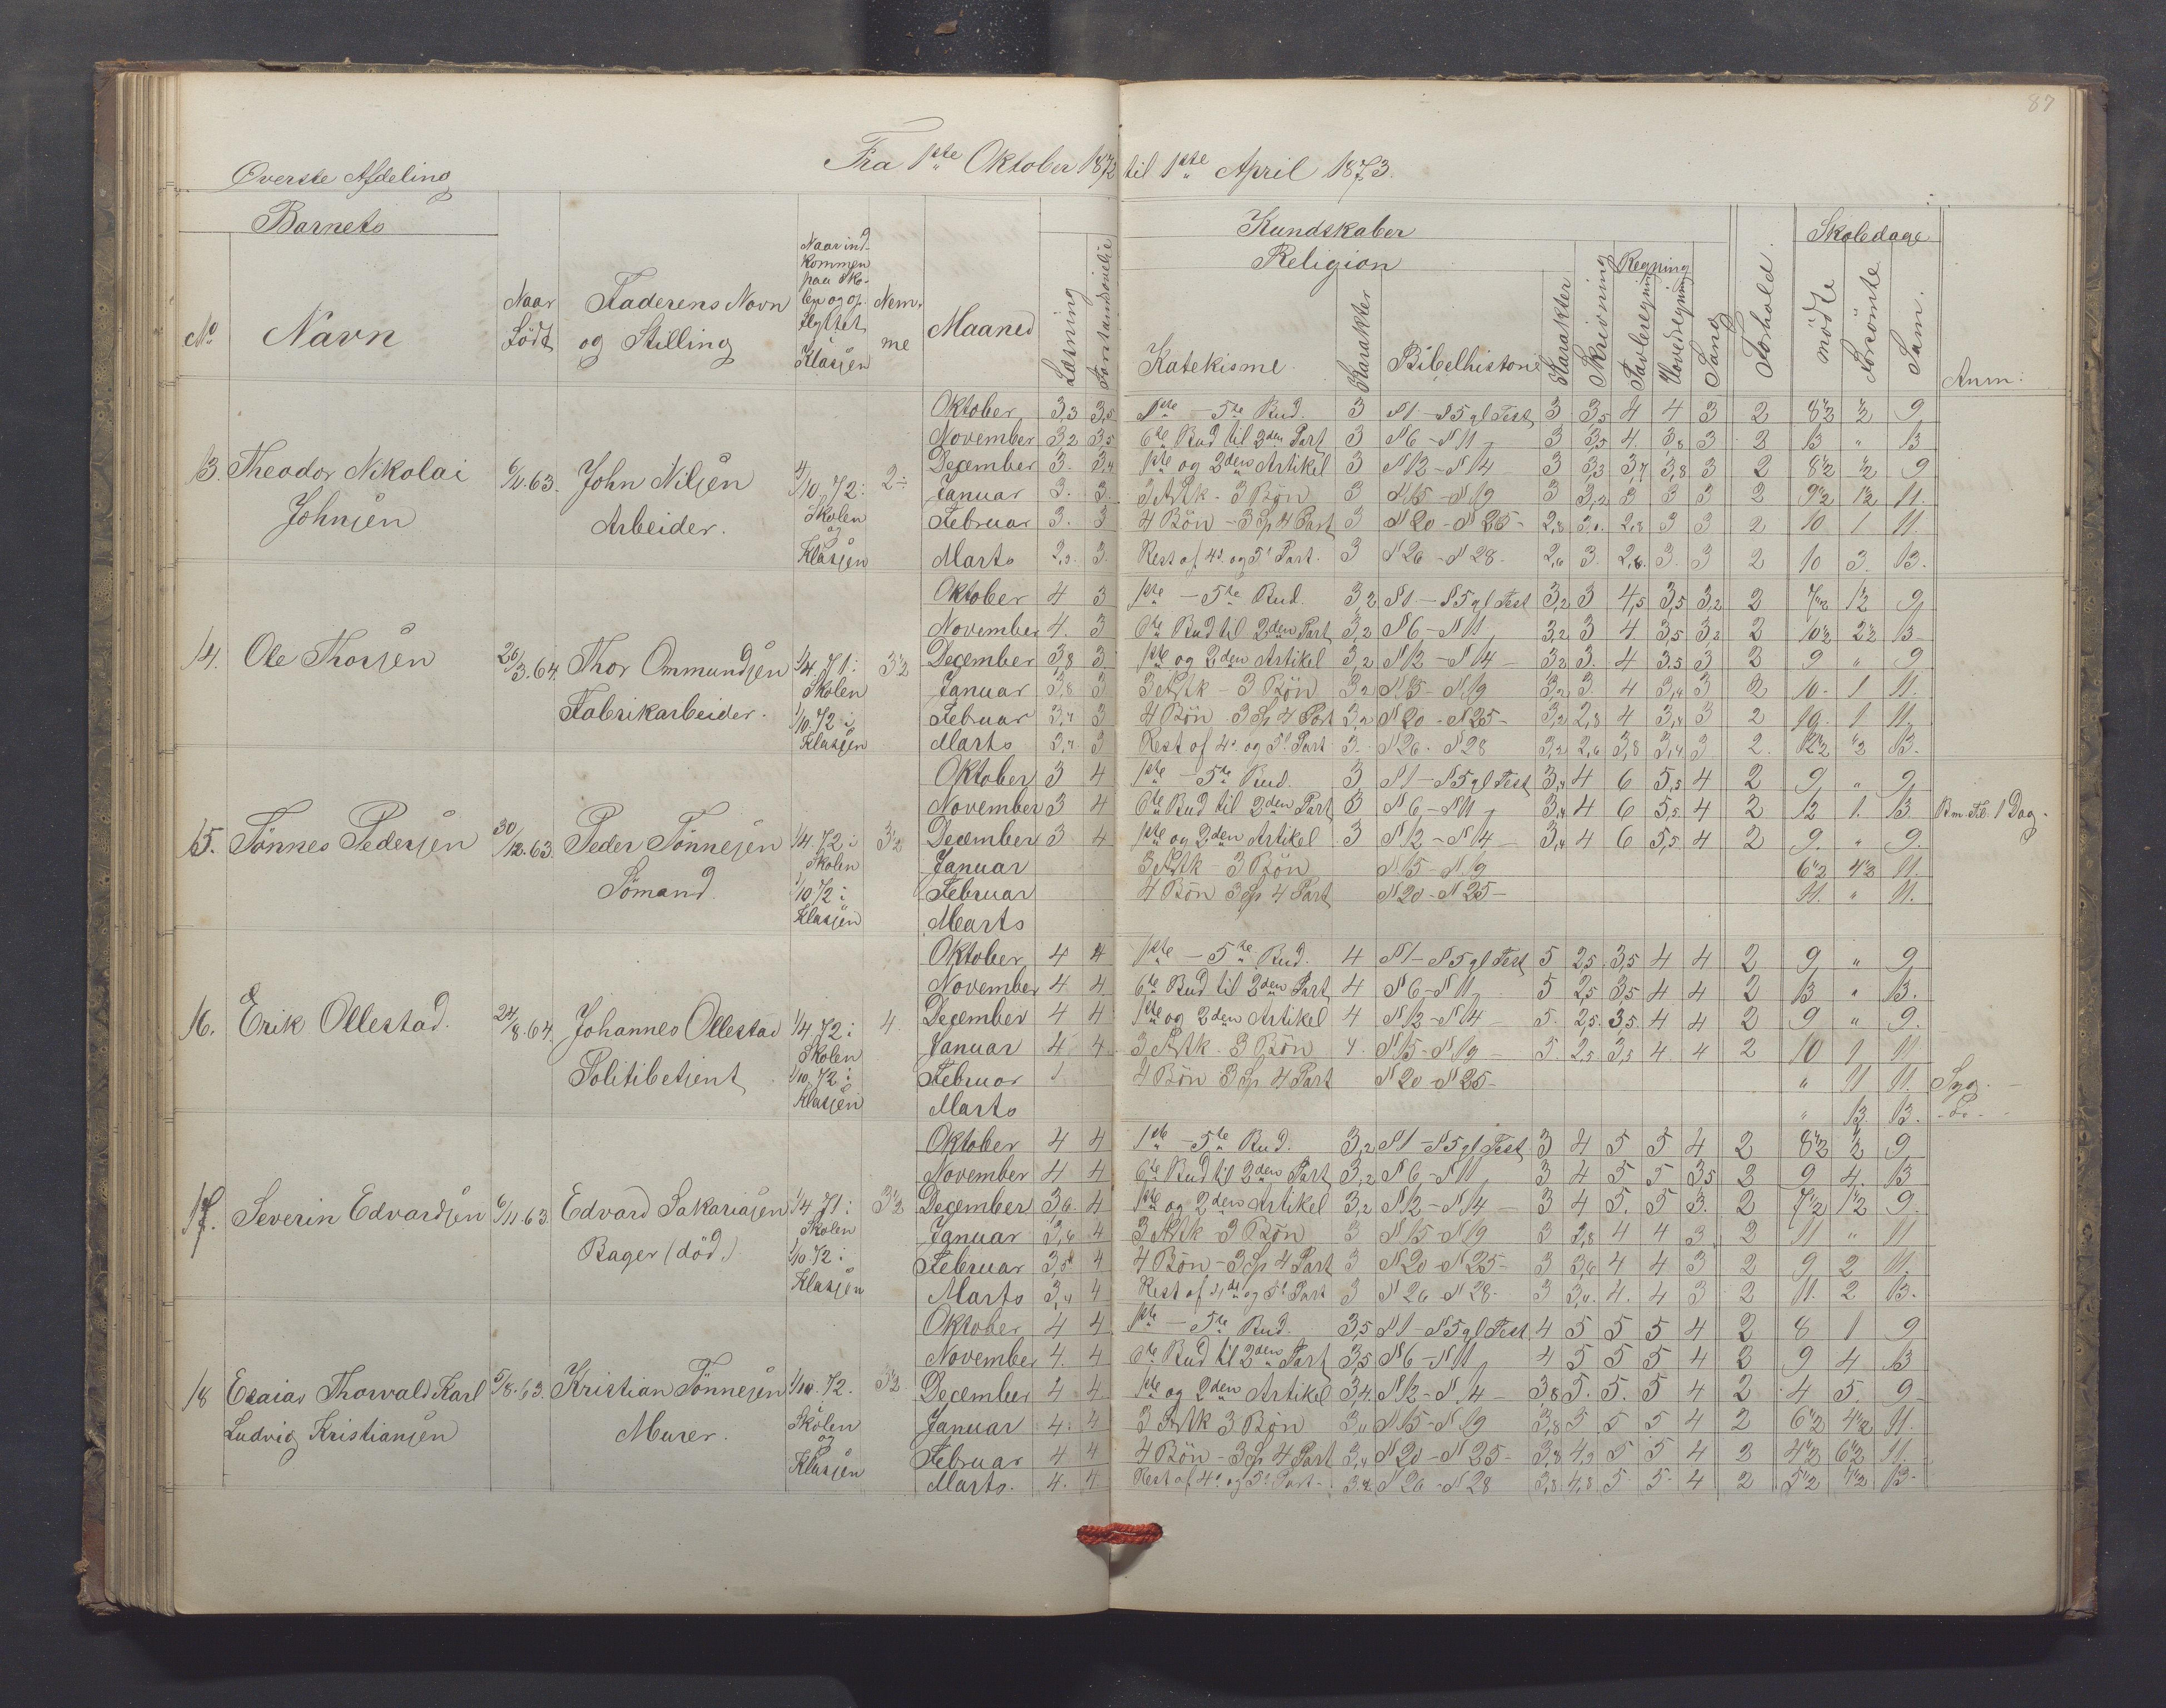 87
Fra 1ste Oktober 1872 til 1ste April 1873.
Øverste Afdeling
Barnets
Kundskaber
Skoledage
Religion
Regning
No
Navn
Naar Födt
Faderens Navn og Stilling
Naar ind-
kommen
paa Sko-
len og op-
flyttet i
Klassen
Nem-
me
Maaned
Læsning
Forstandsøvelse
Katekisme
Karakter
Bibelhistorie
Karakter
Skrivning
Tavleregning
Hovedregning
Sang
Forhold
mödte
Forsömte
Sum.
Anm:
13. Theodor Nikolai Johnsen 6/11.63. John Nilsen Arbeider. 1/10 72: Skolen og Klassen 2÷
Oktober 3,3 3,5 1ste – 5te Bud. 3 §1 – §5 gl Test 3 3,5 4 4 3 2 8½ ½ 9
November 3,2 3,5 6te Bud til 2den Part 3 §6 – §11 3 3,5 4. 3,8 3 2 13 " 13
December 3. 3,4 1ste og 2den Artikel 3 §12 – §14 3 3,3 3,4 3,8 3 2 8½ ½ 9
Januar 3. 3. 3 Artk. – 3 Bön 3 §15 – §19 3 3,2 3 3 3 2 9½ 1½ 11.
Februar 3. 3 4 Bön – 3 Sp 4 Part 3 §20 – §25 – 2,8 2,8 3 3 2 10 1 11
Marts 3. Rest af 4. og 5' Part. 3 §26 – §28. 2,6 3. 2,8. 3. 3 2 10 3. 13.
14. Ole Thorsen 26/3.64. Thor Ommundsen Fabrikarbeider. 1/4 71: Skolen 1/10. 72 i Klassen 3½
Oktober 4 3 1ste – 5te Bud. 3,2 §1 – §5 gl Test 3,2 3 4,5 3,5 3,2 2 7½ 1½ 9
November 4. 3 6te Bud til 2den Part 3,2 §6 – §11 3,2 3 4. 3,5 3,2 2 10½ 2½ 13
December 3,8 3 1ste og 2den Artikel 3,2 §12 – §14 – 3,2 3. 4 3,5 3 2 9 " 9
Januar 3,8 3 3 Artk – 3 Bön 3,2 §15 – §19 3,2 3. 4 3,4 3 2 10. 1 11.
Februar 3,4 3 4 Bön 3 Sp 4 Part 3,2 §20 – §25 – 3,2 2,8 4 3,4 3 2 10. 1. 11.
Marts 3,4. 3 Rest af 4. og 5' Part 3. §26. §28 3,2 2,6 3,8 3,4 3 2. 12½ ½ 13.
15. Tönnes Pedersen 30/12.63. Peder Tönnesen Sömand. 1/4 72 i Skolen 1/10 72 i Klassen 3½
Oktober 3 4 1ste – 5te Bud. 3 §1 – §5 gl Test 3,4 4 6 5,5 4 2 9 " 9
November 3 4 6te Bud til 2den Part 3 §6 – §11 3,4 4 6 5,5 4 2 12 1. 13 1 Dag.
December 3 4 1ste og 2den Artikel 3 §12 – §14 – 3,4 4 6 5,5 4 2 9. " 9.
Januar 3 Artk – 3 Bön §15 – §19 6½ 4½ 11.
Februar 4 Bön 3 Sp 4 Part §20 – §25 – 11. " 11.
Marts
16. Erik Ollestad. 24/8.64. Johannes Ollestad Politibetjent 1/4 72 i Skolen 1/10. 72 i Klassen 4
Oktober 4 4 1ste – 5te Bud. 4 §1 – §5 gl Test 5 2,5. 3,5 4 4 2 9 " 9
November 4 4 6te Bud til 2den Part 4 §6 – §11 5 2,5 3,5 4 4 2 13 " 13.
December 4 4 1ste og 2den Artikel 4 §12 – §14 – 5. 2,5. 3,5. 4 4 2 9 " 9.
Januar 4 4. 3 Artk. 3 Bön 4. §15 – §19 – 5. 2,5 3,5 4. 4 2 10 1 11
Februar 4 Bön 3 Sp 4 Part §20 – §25 – " 11 11. Syg. –
Marts " 13. 13.
17. Severin Edvardsen 6/11 63 Edvard Sakariasen Bager (död.) 1/4 71: Skolen 1/10 72 i Klassen 3½
Oktober 4 4 1ste – 5te Bud. 3,2 §1 – §5 gl Test 3 4 5 5 4 2 8½ ½ 9
November 4 4 6te Bud til 2den Part 3,2 §6 – §11 3 4 5 5 3,5 2 9 4. 13
December 3,6. 4 1ste og 2den Artikel 3,2 §12 – §14 – 3 4 5. 5 3. 2 7½ 1½ 9.
Januar 3,6 4 3 Artk – 3 Bön 3 §15 – §19 3 4 4 3 2 11 " 11
Februar 3,5 4 4 Bön – 3 Sp 4 Part 3 §20 – §25 – 3 3,6 4 4 3 2 9 2 11.
Marts 3,4 4 Rest af 4de og 5' Part 3 §26 – §28 – 3 3,4. 4. 4 3 2 11. 2 13.
18 Esaias Thorvald Karl Ludvig Kristiansen 5/8.63. Kristian Tönnesen Murer. 1/10. 72. i Skolen og Klassen 3½
Oktober 4 4 1ste – 5te Bud. 3,5 §1 – §5 gl Test 4 5 5 5 4 2 8 1 9
November 4. 4 6te Bud til 2den Part 3,5 §6 – §11 4 5 5 5 4 2 9 4 13
December 4 4 1ste og 2den Artikel 3,4. §12 – §14 – 3,8 5. 5. 5 4 2 4 5. 9
Januar 4. 4 3 Artk 3 Bön 3,4 §15 – §19 3,8 5 5 5 4 2 6½ 4½ 11.
Februar 4 4 4 Bön – 3 Sp 4 Part 3,4 §20 – §25 – 3,8 4,9 5 5 4 2 4½ 6½ 11.
Marts. 4. 4 Rest af 4. og 5' Part – 3,4. §26 – §28 3,8 4,8 5 5. 4 2 5½ 7½ 13.